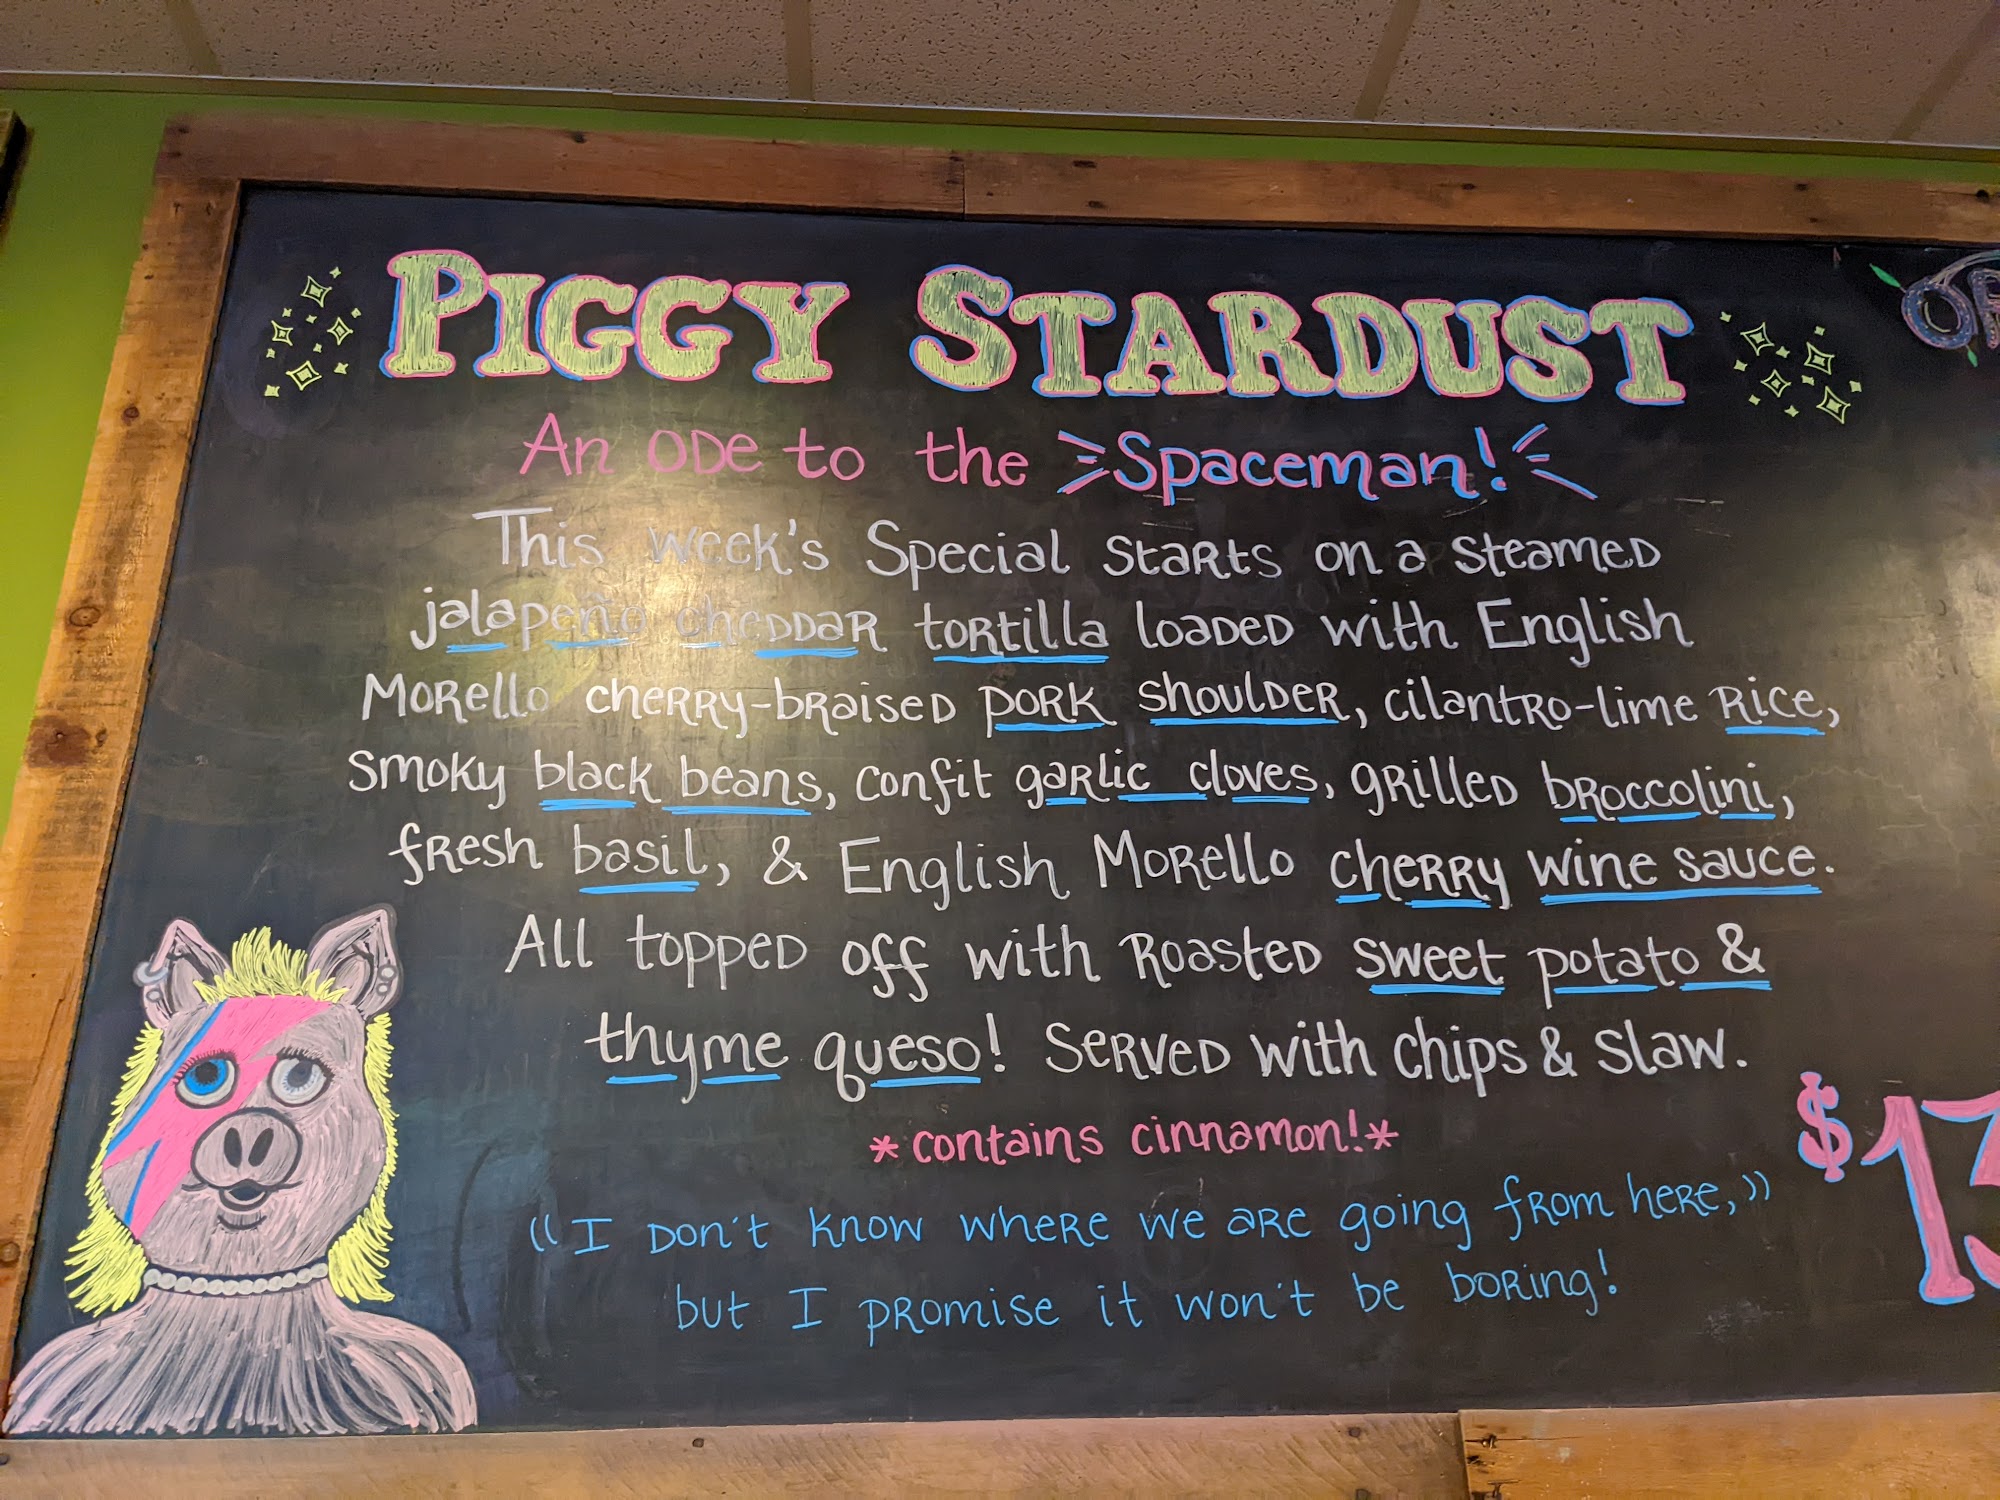 PIGGY STARDUST
An ODE to the Spaceman!
This week's Special Starts on a Steamed
jalapeño cheddar tortilla loaded with English
Morello cherry-braised pork shoulder, cilantro-lime Rice,
smoky black beans, confit garlic cloves, grilled broccolini,
fresh basil, & English Morello cherry wine sauce.
All topped off with Roasted sweet potato &
thyme queso! Served with chips & slaw.
*contains cinnamon!*
"I don't know where we are going from here,"
but I promise it won't be boring!
$13